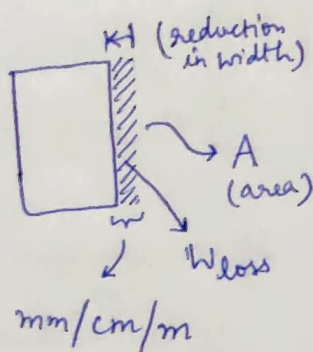 (reduction
in width)
A
(area)
W loss
mm/cm/m